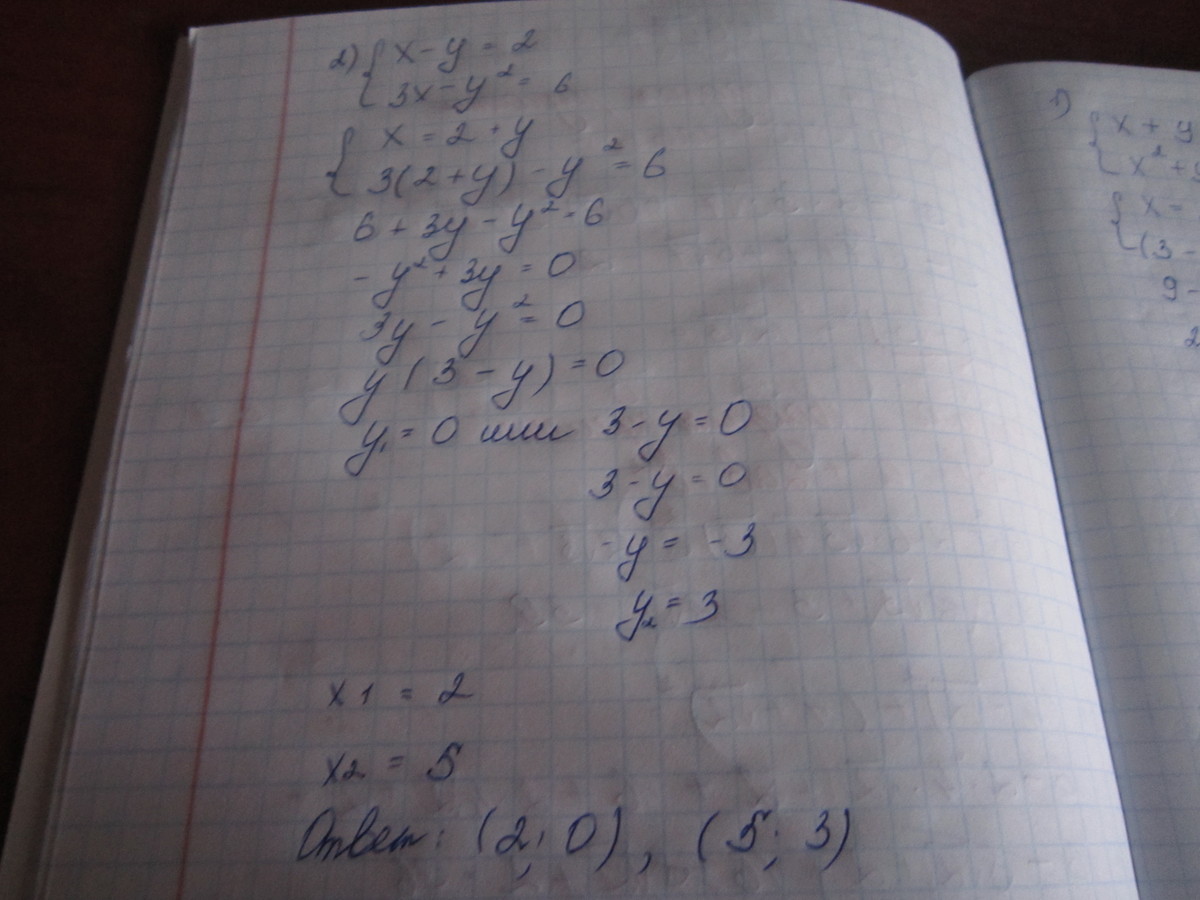 2) { x - y = 2
3x - y² = 6
{ x = 2 + y
3(2+y) - y² = 6
6 + 3y - y² = 6
- y² + 3y = 0
3y - y² = 0
y(3 - y) = 0
y₁ = 0 или 3 - y = 0
3 - y = 0
- y = -3
y₂ = 3
x1 = 2
x2 = 5
Ответ: (2; 0), (5; 3)
1)
{ x + y
x² + y
{ x =
(3 -
9 -
2